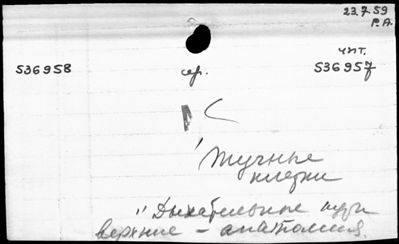 23.7.59
Р.А.
чит.
536958 ср. 536957
Тучные
клетки
" Дыхательные пути
верхние - анатомия.